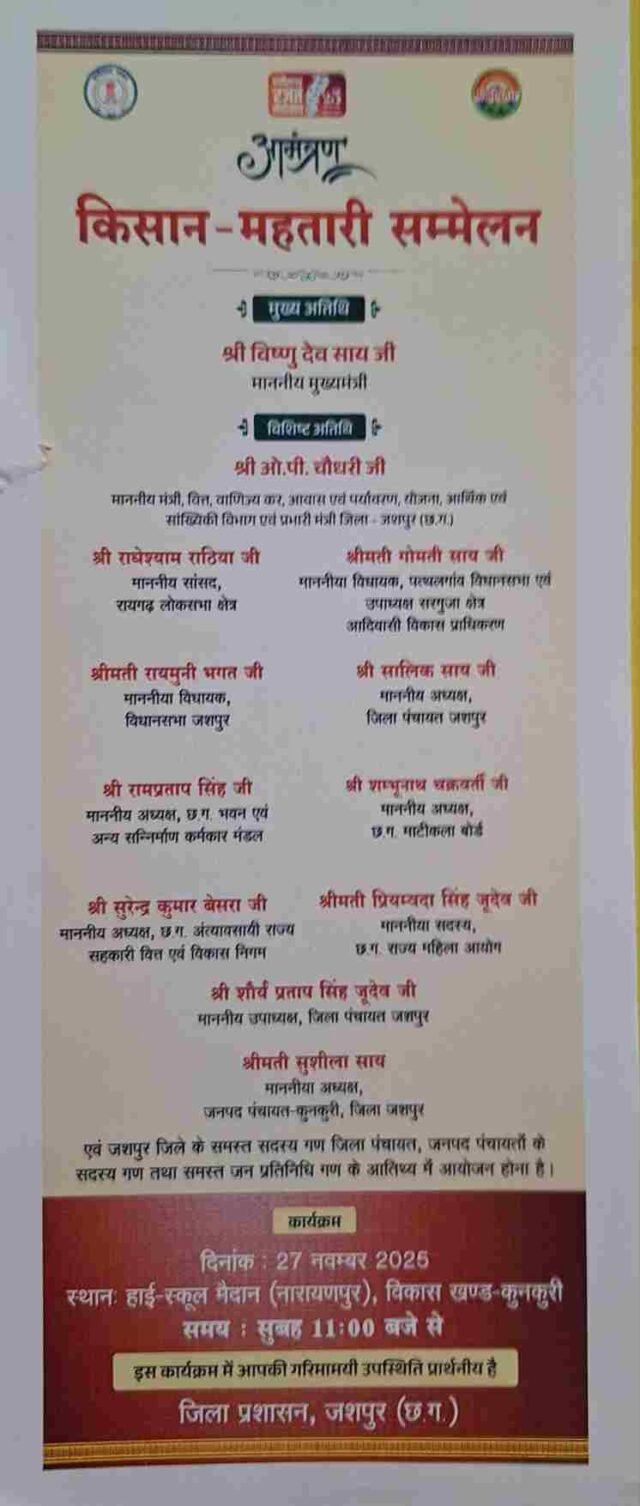 रजत
आमंत्रण
किसान - महतारी सम्मेलन
मुख्य अतिथि
श्री विष्णु देव साय जी
माननीय मुख्यमंत्री
विशिष्ट अतिथि
श्री ओ.पी. चौधरी जी
माननीय मंत्री, वित्त, वाणिज्य कर, आवास एवं पर्यावरण, योजना, आर्थिक एवं
सांख्यिकी विभाग एवं प्रभारी मंत्री जिला - जशपुर (छ.ग.)
श्री राधेश्याम राठिया जी
माननीय सांसद,
रायगढ़ लोकसभा क्षेत्र
श्रीमती गोमती साय जी
माननीया विधायक, पत्थलगांव विधानसभा एवं
उपाध्यक्ष सरगुजा क्षेत्र
आदिवासी विकास प्राधिकरण
श्रीमती रायमुनी भगत जी
माननीया विधायक,
विधानसभा जशपुर
श्री सालिक साय जी
माननीय अध्यक्ष,
जिला पंचायत जशपुर
श्री रामप्रताप सिंह जी
माननीय अध्यक्ष, छ.ग. भवन एवं
अन्य सन्निर्माण कर्मकार मंडल
श्री शम्भूनाथ चक्रवर्ती जी
माननीय अध्यक्ष,
छ.ग. माटीकला बोर्ड
श्री सुरेन्द्र कुमार बेसरा जी
माननीय अध्यक्ष, छ.ग. अंत्यावसायी राज्य
सहकारी वित्त एवं विकास निगम
श्रीमती प्रियम्वदा सिंह जूदेव जी
माननीया सदस्य,
छ.ग. राज्य महिला आयोग
श्री शौर्य प्रताप सिंह जूदेव जी
माननीय उपाध्यक्ष, जिला पंचायत जशपुर
श्रीमती सुशीला साय
माननीया अध्यक्ष,
जनपद पंचायत-कुनकुरी, जिला जशपुर
एवं जशपुर जिले के समस्त सदस्य गण जिला पंचायत, जनपद पंचायतों के
सदस्य गण तथा समस्त जन प्रतिनिधि गण के आतिथ्य में आयोजन होना है।
कार्यक्रम
दिनांक : 27 नवम्बर 2025
स्थान: हाई-स्कूल मैदान (नारायणपुर), विकास खण्ड-कुनकुरी
समय : सुबह 11:00 बजे से
इस कार्यक्रम में आपकी गरिमामयी उपस्थिति प्रार्थनीय है
जिला प्रशासन, जशपुर (छ.ग.)